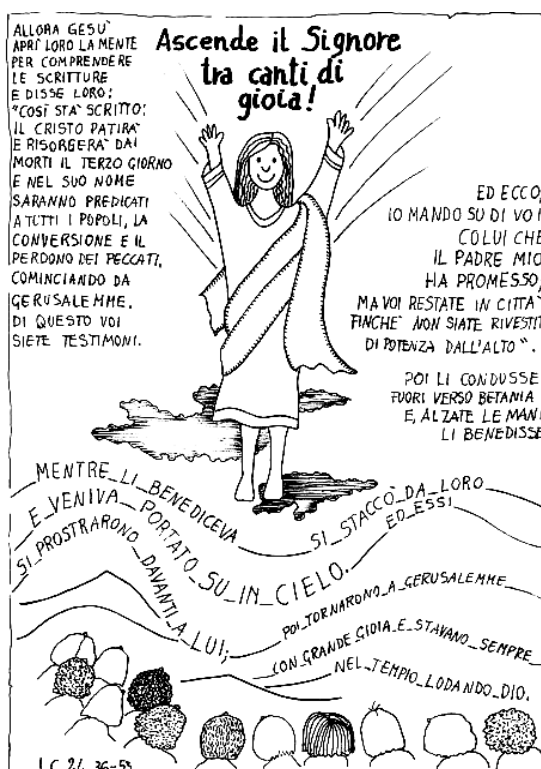 Ascende il Signore
tra canti di
gioia!
ALLORA GESU'
APRI' LORO LA MENTE
PER COMPRENDERE
LE SCRITTURE
E DISSE LORO:
"COSI' STA' SCRITTO:
IL CRISTO PATIRA'
E RISORGERA' DAI
MORTI IL TERZO GIORNO
E NEL SUO NOME
SARANNO PREDICATI
A TUTTI I POPOLI, LA
CONVERSIONE E IL
PERDONO DEI PECCATI,
COMINCIANDO DA
GERUSALEMME.
DI QUESTO VOI
SIETE TESTIMONI.
ED ECCO,
IO MANDO SU DI VOI
COLUI CHE
IL PADRE MIO
HA PROMESSO,
MA VOI RESTATE IN CITTA'
FINCHE' NON SIATE RIVESTIT
DI POTENZA DALL'ALTO".
POI LI CONDUSSE
FUORI VERSO BETANIA
E, ALZATE LE MANI
LI BENEDISSE
MENTRE_LI_BENEDICEVA
SI_STACCÒ_DA_LORO
E_VENIVA_PORTATO_SU_IN_CIELO.
ED_ESSI
SI_PROSTRARONO_DAVANTI_A_LUI;
POI_TORNARONO_A_GERUSALEMME
CON_GRANDE_GIOIA_E_STAVANO_SEMPRE
NEL_TEMPIO_LODANDO_DIO.
LC 24,36-53